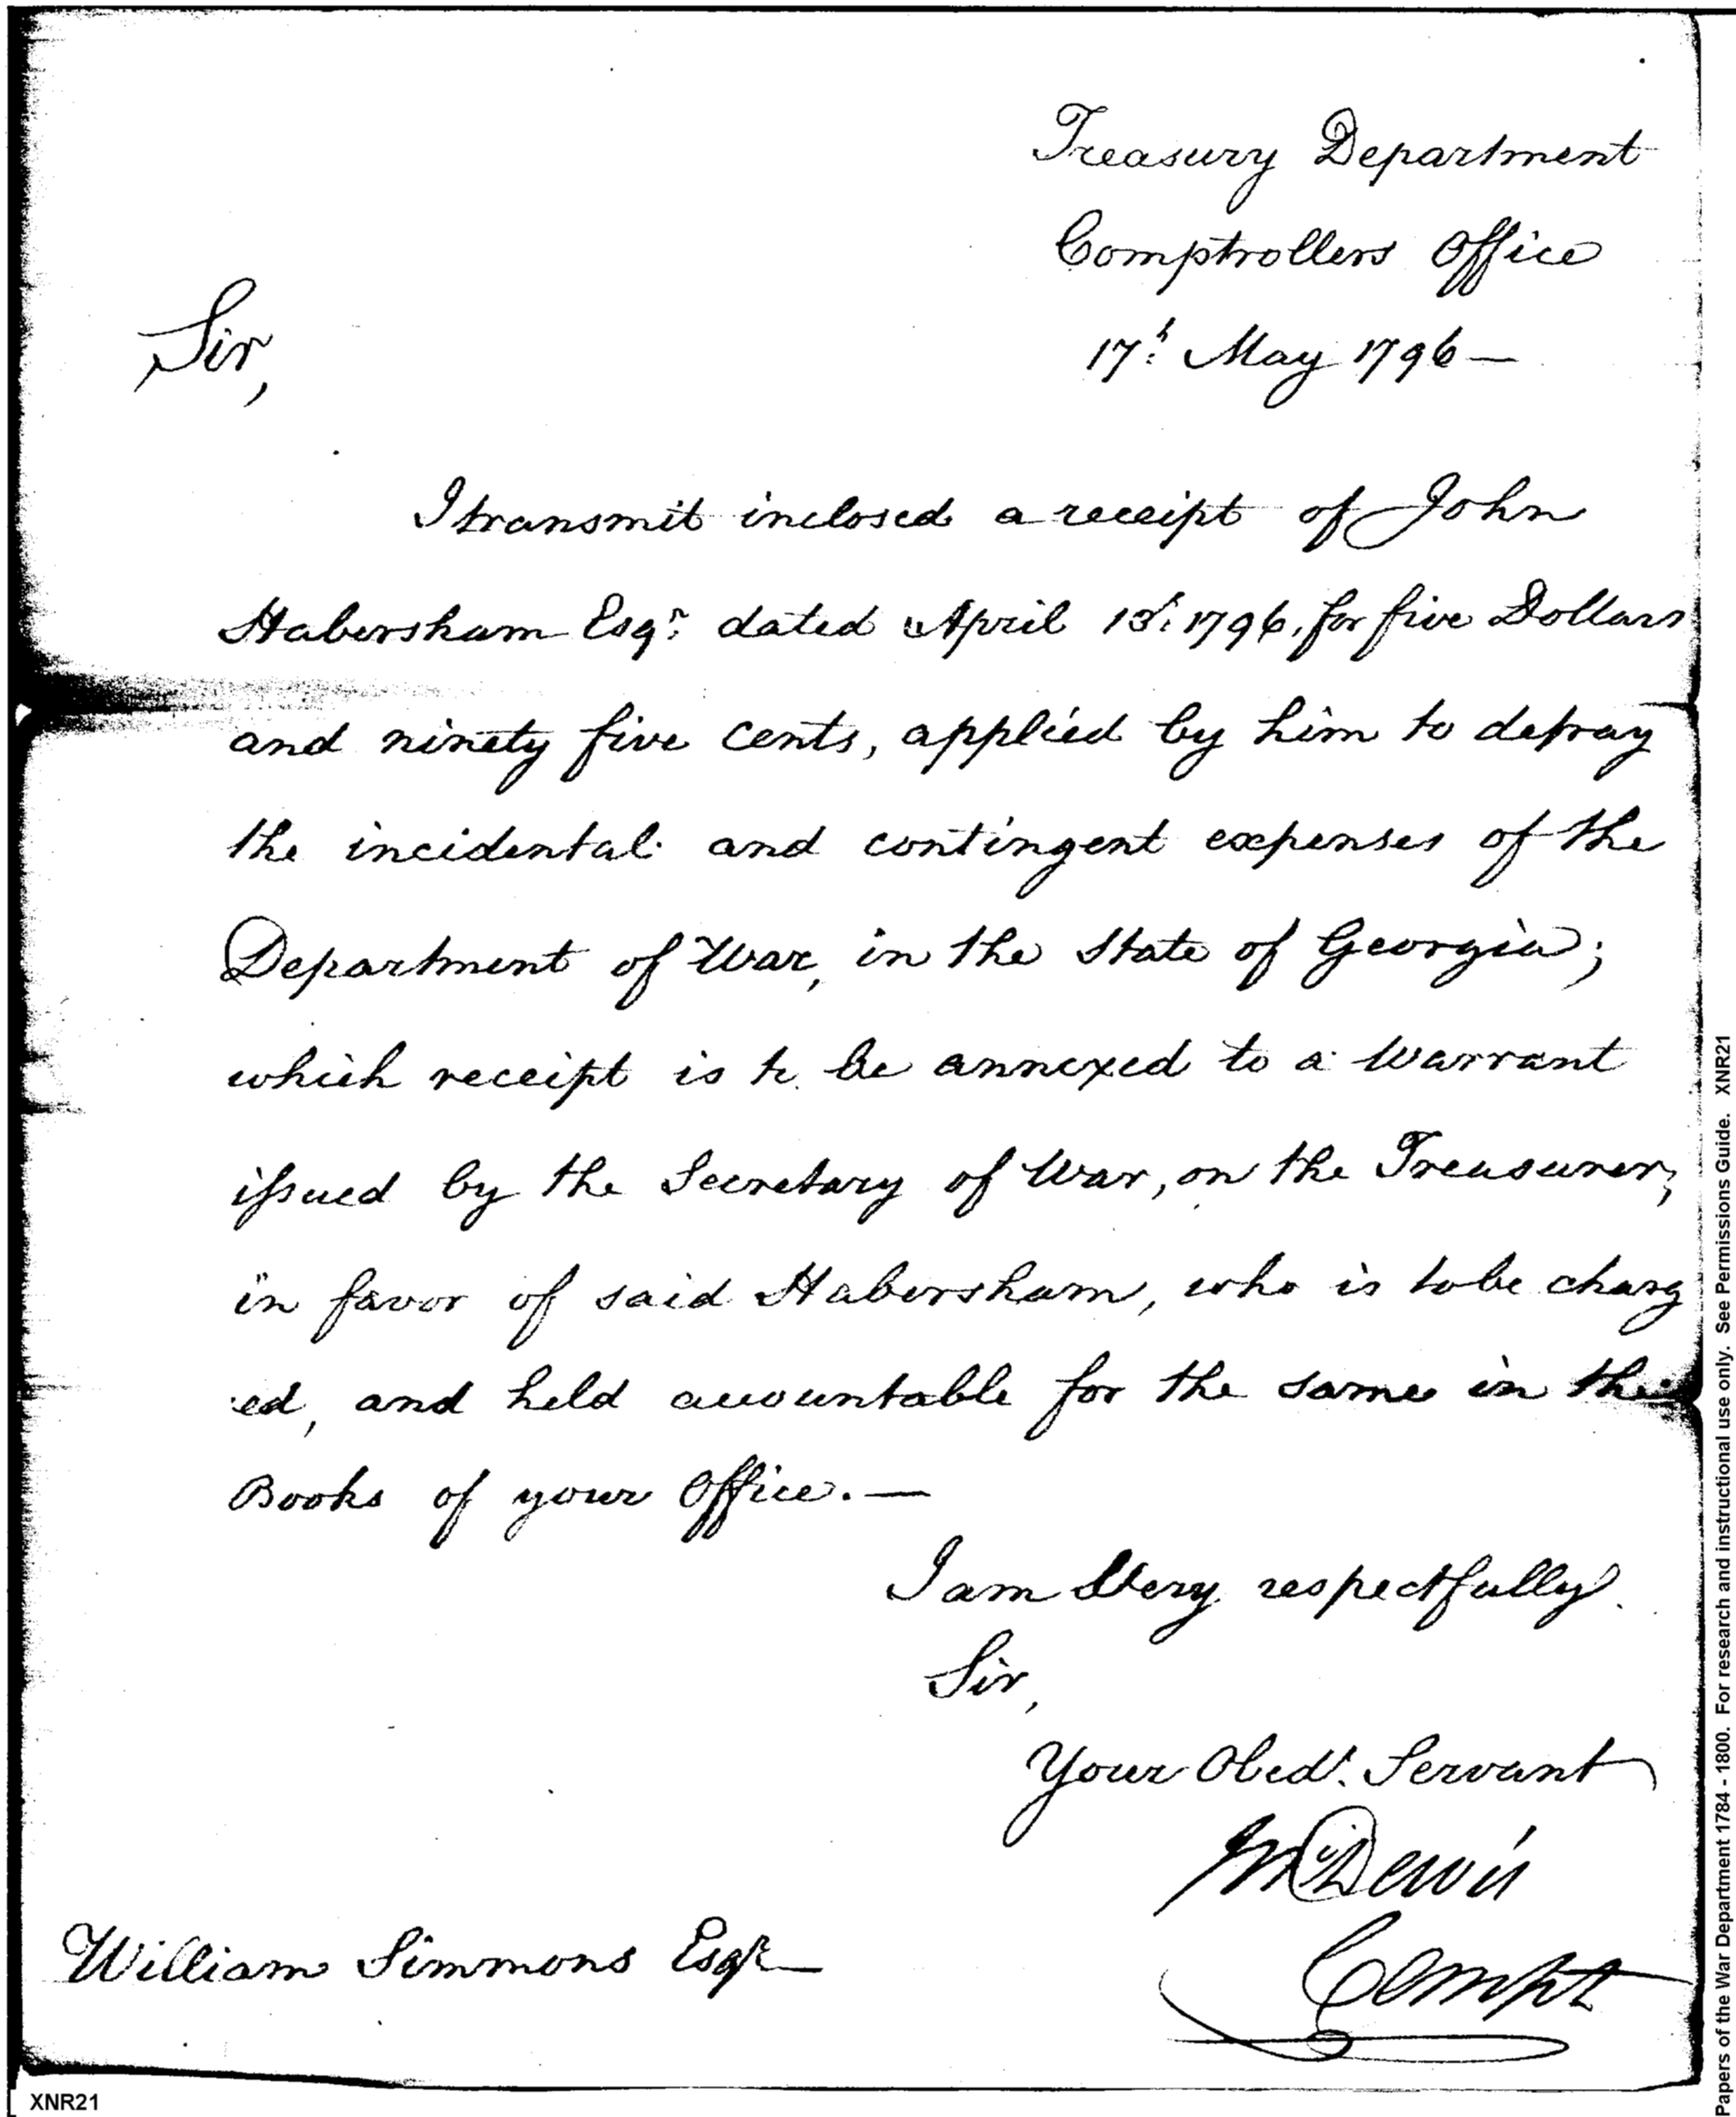 Treasury Department
Comptrollers Office
17th May 1796—
Sir,
I transmit inclosed a receipt of John
Habersham Esqr. dated April 13th 1796, for five Dollars
and ninety five Cents, applied by him to defray
the incidental and contingent expenses of the
Department of War, in the State of Georgia;
which receipt is to be annexed to a Warrant
issued by the Secretary of War, on the Treasurer,
in favor of said Habersham, who is to be charg
ed, and held accountable for the same in the
Books of your Office.—
I am Very respectfully
Sir,
Your Obedt. Servant
Compt
William Simmons Esqr
XNR21
Papers of the War Department 1784 - 1800. For research and instructional use only. See Permissions Guide. XNR21